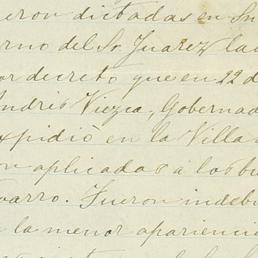 ueron dictadas en Sn
erno del Sr Juarez la
or decreto que en 22 d
Andrés Viezca, Gobernad
expidió en la Villa
on aplicadas á los bi
varro. Fueron indeb
la menor aparienci